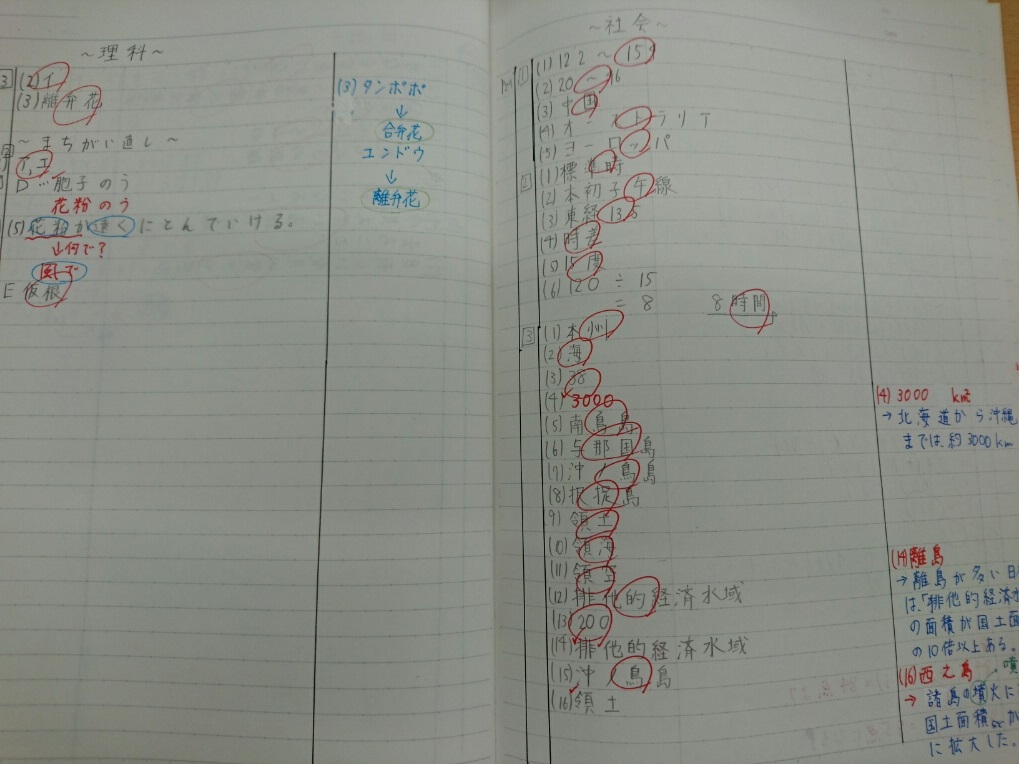 ～理科～
3 (2) イ
(3) 離弁花
～まちがい直し～
イ,エ
D…胞子のう
花粉のう
(5) 花粉が遠くにとんでいける。
↓何で?
E 仮根
(3) タンポポ
↓
合弁花
エンドウ
↓
離弁花
～社会～
1 (1) 122～154
(2) 20～46
(3) 中国
(4) オーストラリア
(5) ヨーロッパ
2 (1) 標準時
(2) 本初子午線
(3) 東経135
(4) 時差
(5) 15度
(6) 120÷15
=8 8時間
3 (1) 本州
(2) 海
(3) 38
(4) 3000
(5) 南鳥島
(6) 与那国島
(7) 沖ノ鳥島
(8) 択捉島
(9) 領土
(10) 領海
(11) 領空
(12) 排他的経済水域
(13) 200
(14) 排他的経済水域
(15) 沖ノ鳥島
(16) 領土
(4) 3000 km²
→北海道から沖縄
までは、約3000km
(14) 離島
→離島が多い日
は、「排他的経済水
の面積が国土面
の10倍以上ある。
(16) 西之島 噴
→諸島の噴火に
国土面積が
に拡大した。